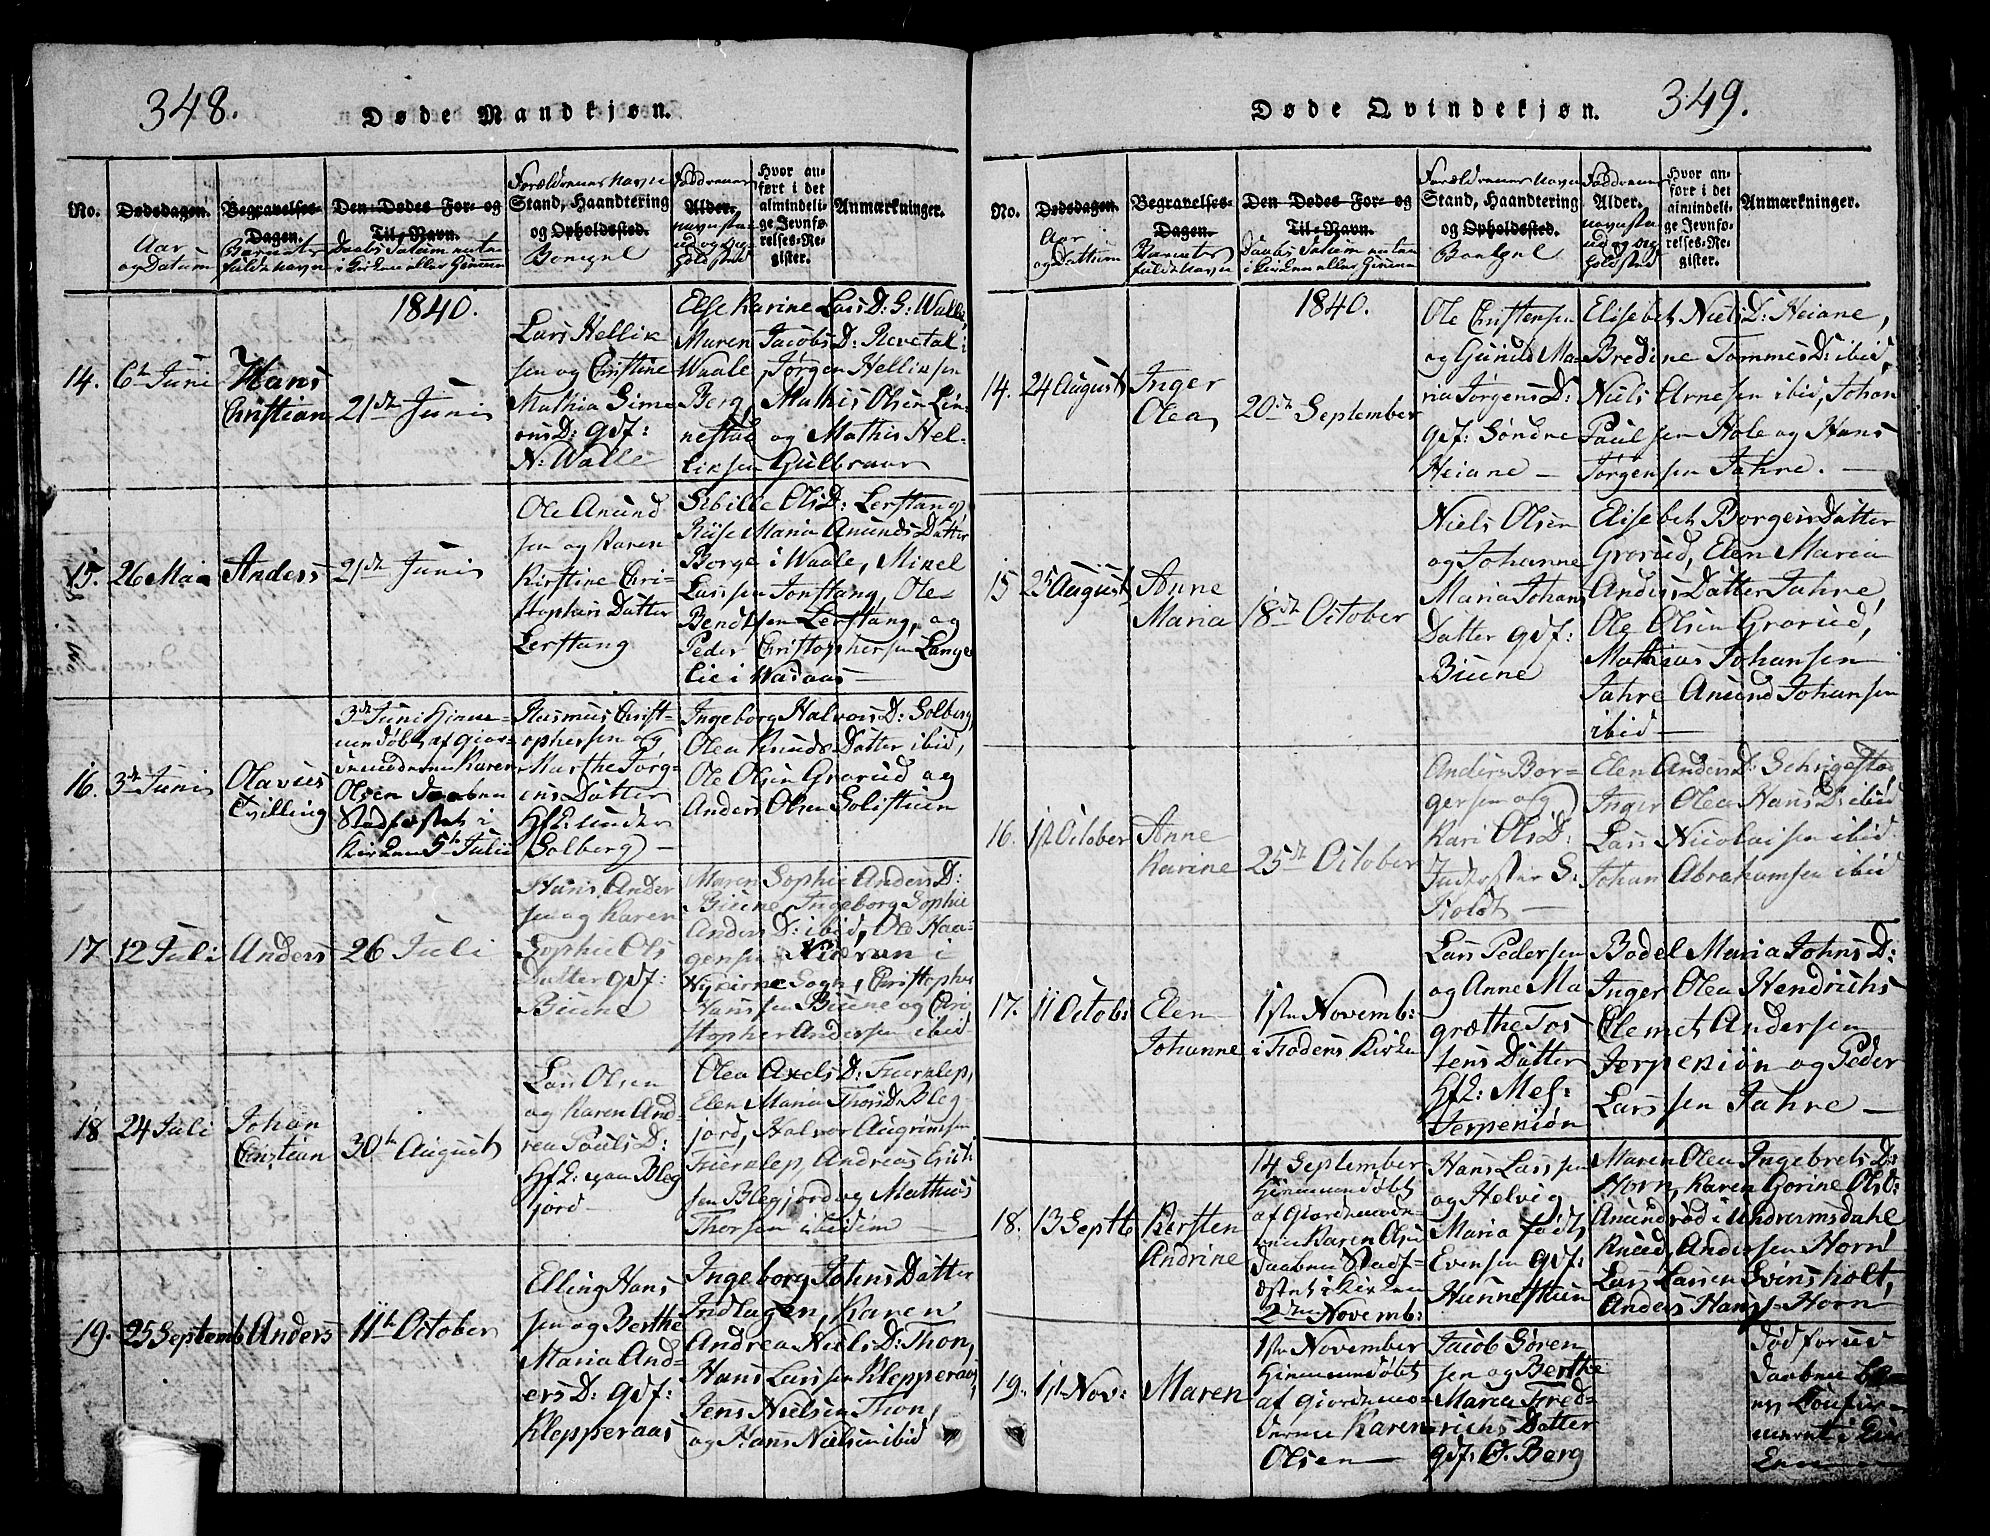 348.
Døde Mandkjøn.
No.
Dødsdagen.
Aar
og Datum
Begravelses-
Dagen.
Barnets
fulde Navn
Den Dødes For- og
Til-Navn.
Daabs Datum enten
i Kirken eller Hjemme
Forældrenes Navn
Stand, Haandtering
og Opholdssted.
Bopæl
Faddernes
Alder.
Navn, Stand og
Opholdssted
Hvor an-
ført i det
almindeli-
ge Jevnfø-
relses-Re-
gister.
Anmærkninger.
1840.
14.
6te Juni
Hans
Christian
21de Juni
Lars Hellik
sen og Christine
Mathia Sime
onsD: gdf:
N: Walle
Else Karine LarsD: S: Walle,
Maren JacobsD: Revetal i
Waale, Jørgen Helliksen
Berg, Mathis Olsen Lin-
nestad og Mathis Hel-
liksen Gulbraar
15.
26 Mai
Anders
21de Juni
Ole Anund
sen og Karen
Kirstine Chri-
stophers Datter
Lerstang
Sibille OlsD: Lerstang,
Riise Maria Anunds Datter
Borge i Waale, Mikel
Larssen Tonstang, Ole
Bendtsen Lerstang, og
Peder Christophersen Lange
lie i Wadaas
16.
3de Juni
Olavus
Tvilling
3de Juni hjemme-
døbt af Gjor-
demoderen Karen
Olsen Daaben
Stadfæstet i
Kirken 5te Julii
Rasmus Christ-
ophersen og
Marthe Jørg-
ens Datter
Hfd: under
Solberg
Ingeborg HalvorsD: Solberg,
Olea Knuds Datter ibid,
Ole Olsen Grorud og
Anders Olsen Solistuen
17.
12 Juli
Anders
26 Juli
Hans Ander
sen og Karen
Sophie Ols
Datter gdf:
Biune
Maren Sophie AndersD:
Biune, Ingeborg Sophie
AndersD: ibid, Ole Haa-
gensen Nidran i
Nykirke Sogn, Christopher
Hanssen Biune og Chri
stopher Andersen ibid
18
24 Juli
Johan
Christian
30te August
Lars Olsen
og Karen And-
rea PoulsD:
Hfd: paa Bleg
jord
Olea AxelsD: Fueralep,
Elen Maria ThorsD: Bleg-
jord, Halvor Augrimsen
Fueralep, Andreas Gut
sen Blegjord og Mathias
Thorsen ibidem
19.
25 Septemb
Anders
11te October
Elling Hans
sen og Berthe
Maria And-
ersD: gdf:
Klepperaas
Ingeborg Johns Datter
Indlagen, Karen
Andrea NielsD: Thon,
Hans Larssen Klepperaas,
Jens Nielsen Thon,
og Hans Nielsen ibid
349.
Døde Qvindekjøn.
No.
Dødsdagen.
Aar
og Datum
Begravelses-
Dagen.
Barnets
fulde Navn
Den Dødes For- og
Til-Navn.
Daabs Datum enten
i Kirken eller Hjemme
Forældrenes Navn
Stand, Haandtering
og Opholdssted.
Bopæl
Faddernes
Alder.
Navn, Stand
og Op-
holdsted
Hvor an-
ført i det
almindeli-
ge Jevnfø-
relses-Re-
gister.
Anmærkninger.
1840.
14.
24 August
Inger
Olea
20de September
Ole Christensen
og Gunild Ma
ria JørgensD:
gdf: Søndre
Heiane
Elisebet NielsD: Heiane,
Bredine TommesD: ibid,
Niels Arnesen ibid, Johan
Paulsen Hole og Hans
Jørgensen Jahre.
15
25 August
Anne
Maria
18de October
Niels Olsen
og Johanne
Maria Johans
Datter gdf:
Biune
Elisebet Borgers Datter
Grorud, Elen Maria
Anders Datter Jahre
Ole Olsen Grorud,
Mathias Johansen
Jahre Anund Johansen
ibid
16.
1st October
Anne
Karine
25de October
Anders Bor-
gersen og
Kari OlsD:
Inderster S:
Holdt
Elen AndersD: Schrigestad
Inger Olea HansD: ibid
Lars Nicolaisen ibid
Johan Abrahamsen ibid
17.
11 Octob:
Elen
Johanne
1ste Novemb:
i Fodens Kirke
Lars Pedersen
og Anne Ma
grethe Tos
tens Datter
Hfd: Mel:
Jerpekiøn
Bodel Maria JohnsD:
Inger Olea Hendrichs
Clemet Andersen
Jerpekiøn og Peder
Larssen Jahre
18.
13 Septb
Kersten
Andrine
14 September
Hjemmedøbt
af Gjordemode-
ren Karen Olsen
Daaben Stadf-
æstet i Kirken
2den Novemb:
Hans Larssen
og Helvig
Maria født
Evensen gdf:
Hunnestuen
Maren Olea IngebretsD:
Horn, Karen Gorine OlsD:
Anundrød i Undrumsdahl
Knud Andersen Horn,
Lars Larsen Svinsholt,
Anders Hanss: Horn
19.
1st Nov:
Maren
1ste November
Hjemmedøbt
af Gjordemo-
deren Karen
Olsen
Jacob Søren
sen og Berthe
Maria Fred-
richs Datter
gdf: O. Berg
Død forud
Daaben ble-
v Confir-
meret i Kir
ken